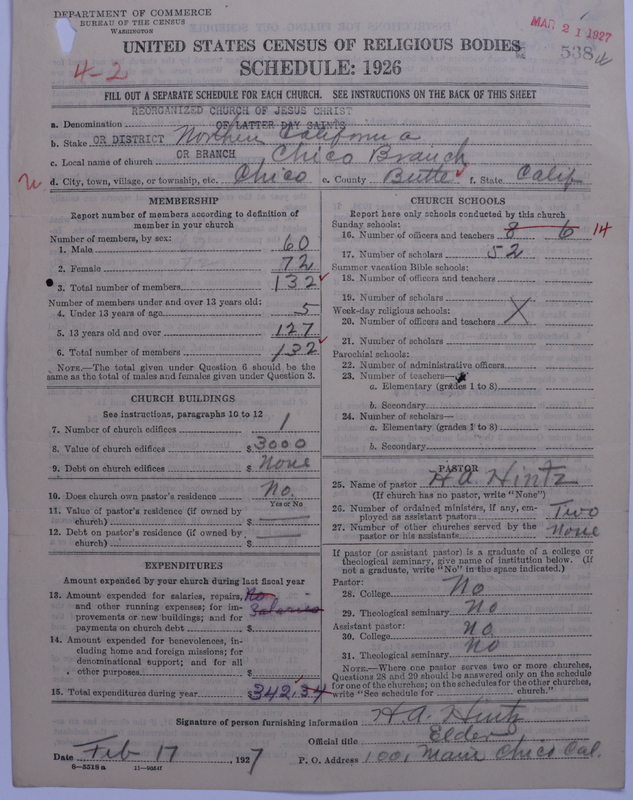 DEPARTMENT OF COMMERCE
BUREAU OF THE CENSUS
WASHINGTON
MAR 21 1927
538
4-2
UNITED STATES CENSUS OF RELIGIOUS BODIES
SCHEDULE: 1926
FILL OUT A SEPARATE SCHEDULE FOR EACH CHURCH. SEE INSTRUCTIONS ON THE BACK OF THIS SHEET
REORGANIZED CHURCH OF JESUS CHRIST
a. Denomination OF LATTER DAY SAINTS
b. Stake OR DISTRICT Northern California
c. Local name of church OR BRANCH Chico Branch
d. City, town, village, or township, etc. Chico e. County Butte f. State Calif
MEMBERSHIP
Report number of members according to definition of
member in your church
Number of members, by sex:
1. Male 60
2. Female 72
3. Total number of members 132
Number of members under and over 13 years old:
4. Under 13 years of age 5
5. 13 years old and over 127
6. Total number of members 132
NOTE.—The total given under Question 6 should be
same as the total of males and females given under Question 3.
CHURCH BUILDINGS
See instructions, paragraphs 10 to 12
7. Number of church edifices 1
8. Value of church edifices $ 3000
9. Debt on church edifices $ None
10. Does church own pastor's residence No.
Yes or No
11. Value of pastor's residence (if owned by
church) $
12. Debt on pastor's residence (if owned by
church) $
EXPENDITURES
Amount expended by your church during last fiscal year
13. Amount expended for salaries, repairs, No
and other running expenses; for im- Salaries
provements or new buildings; and for
payments on church debt $
14. Amount expended for benevolences, in-
cluding home and foreign missions; for
denominational support; and for all
other purposes $
15. Total expenditures during year $ 342,34
CHURCH SCHOOLS
Report here only schools conducted by this church
Sunday schools:
16. Number of officers and teachers 8 6 14
17. Number of scholars 52
Summer vacation Bible schools:
18. Number of officers and teachers
19. Number of scholars
Week-day religious schools:
20. Number of officers and teachers X
21. Number of scholars
Parochial schools:
22. Number of administrative officers
23. Number of teachers—
a. Elementary (grades 1 to 8)
b. Secondary
24. Number of scholars—
a. Elementary (grades 1 to 8)
b. Secondary
PASTOR
25. Name of pastor H A. Hintz
(If church has no pastor, write "None")
26. Number of ordained ministers, if any, em-
ployed as assistant pastors Two
27. Number of other churches served by the
pastor or his assistants None
If pastor (or assistant pastor) is a graduate of a college or
theological seminary, give name of institution below. (If
not a graduate, write "No" in the space indicated.)
Pastor:
28. College No
29. Theological seminary No
Assistant pastor:
30. College No
31. Theological seminary No
NOTE.—Where one pastor serves two or more churches,
Questions 28 and 29 should be answered only on the schedule
for one of the churches; on the schedules for the other churches,
write "See schedule for church."
Signature of person furnishing information H. A. Hintz
Official title Elder
Date Feb 17, 1927 P. O. Address 1001 Main Chico Cal.
8-5518 a